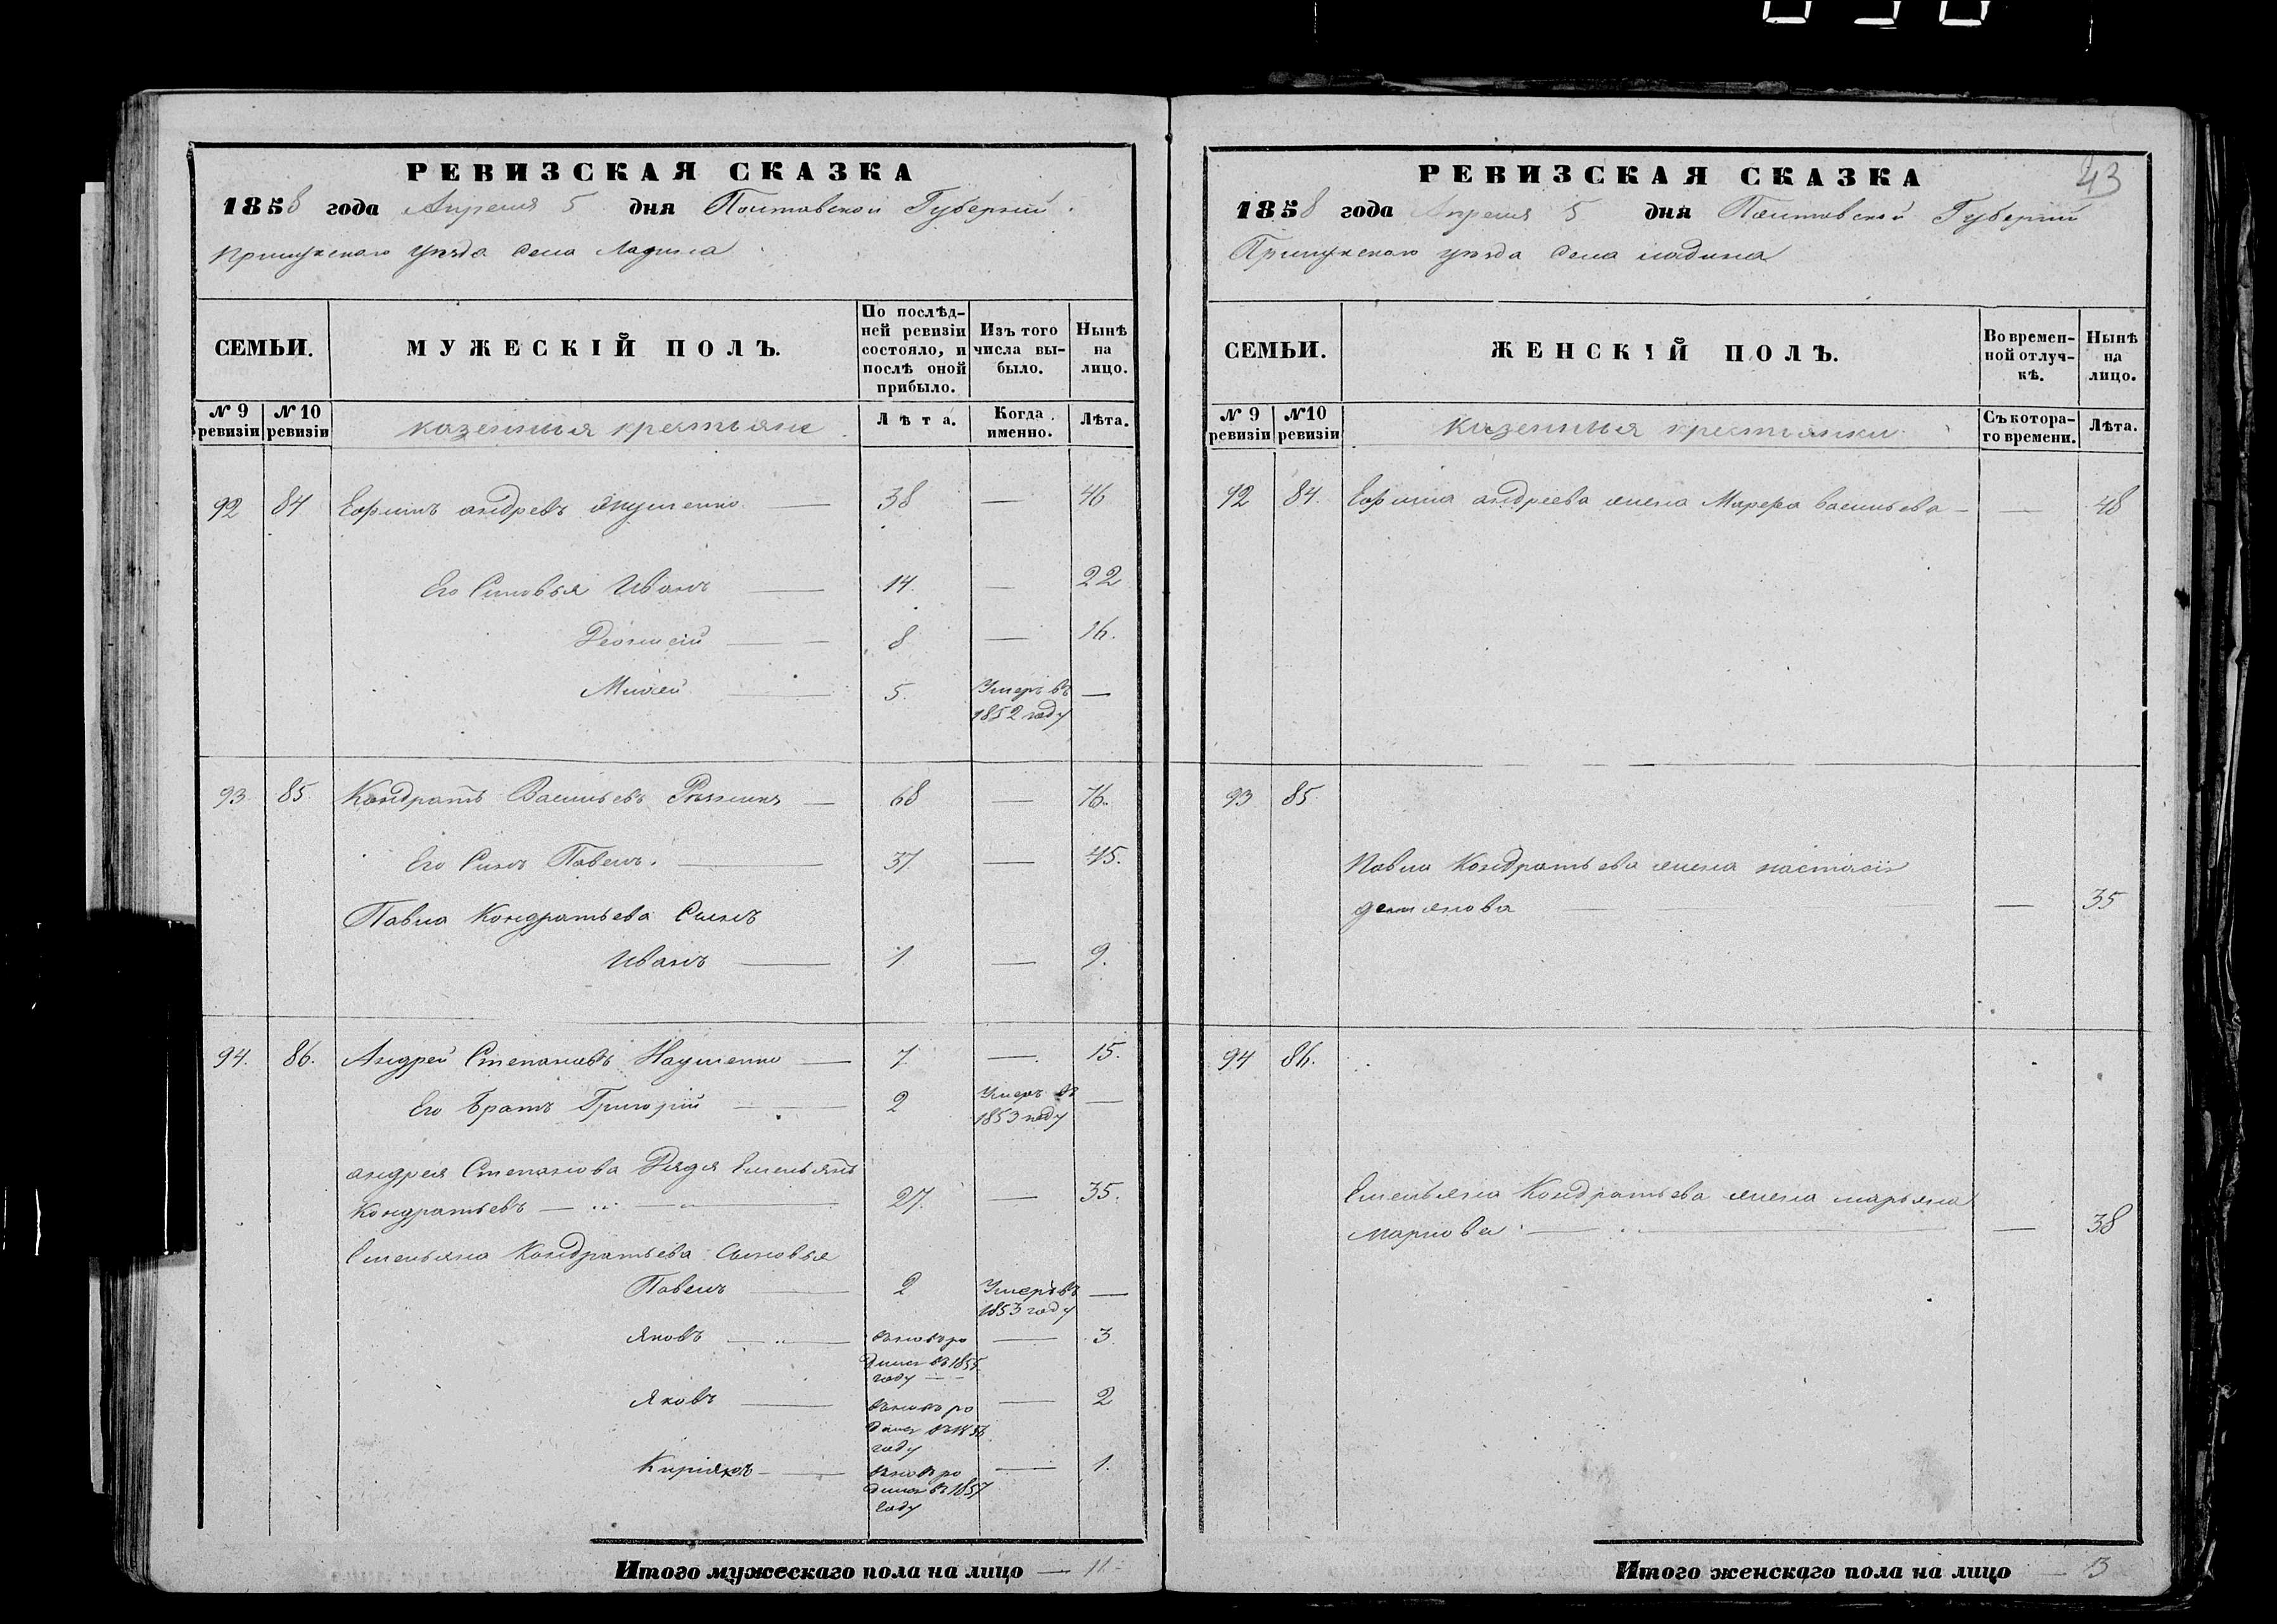 РЕВИЗСКАЯ СКАЗКА
1858 года Апреля 5 дня Полтавской Губерніи
Прилукского уезда села Ладина
СЕМЬИ.
МУЖЕСКІЙ ПОЛЪ.
По послѣд-
ней ревизіи
состояло, и
послѣ оной
прибыло.
Изъ того
числа вы-
было.
Нынѣ
на
лицо.
№ 9
ревизіи
№ 10
ревизіи
казенныя крестьяне
Лѣта.
Когда
именно.
Лѣта.
92 84 Ефимъ андревъ — 38 — 46
Его Сыновья Иванъ — 14. — 22
8 — 16.
5. Умеръ въ —
1852 году
93. 85. Кондратъ Васильевъ — 68 — 76.
Его Синъ Павелъ. — 37 — 45.
Павла Кондратьева Сынъ
Иванъ — 1 — 9.
94. 86. Андрей Степановъ Науменко — 7 — 15.
Его братъ Григорій — 2 Умеръ въ —
1853 году
андрея Степанова Дядя Емельянъ
Кондратьевъ — 27. — 35.
Емельяна Кондратьева сыновья
Павелъ — 2 Умеръ въ —
1853 году
Яковъ — вновь ро — 3
дился въ 1855
году —
Яковъ — вновь ро — 2
дился въ 1856
году
Киріякъ — вновь ро — 1.
дился въ 1857
году
Итого мужескаго пола на лицо — 11
43
РЕВИЗСКАЯ СКАЗКА
1858 года Апреля 5 дня Полтавской Губерніи
Прилукского уезда села ладина
СЕМЬИ.
ЖЕНСКІЙ ПОЛЪ.
Во времен-
ной отлуч-
кѣ.
Нынѣ
на
лицо.
№ 9
ревизіи
№10
ревизіи
Казенныя крестьянки
Съ котора-
го времени.
Лѣта.
92 84. Ефима андреева жена Марфа васильева — — 48
93 85.
Павла Кондратьева жена настасія
демянова — — 35
94 86.
Емельяна Кондратьева жена марьяна
маркова — — 38
Итого женскаго пола на лицо — 3